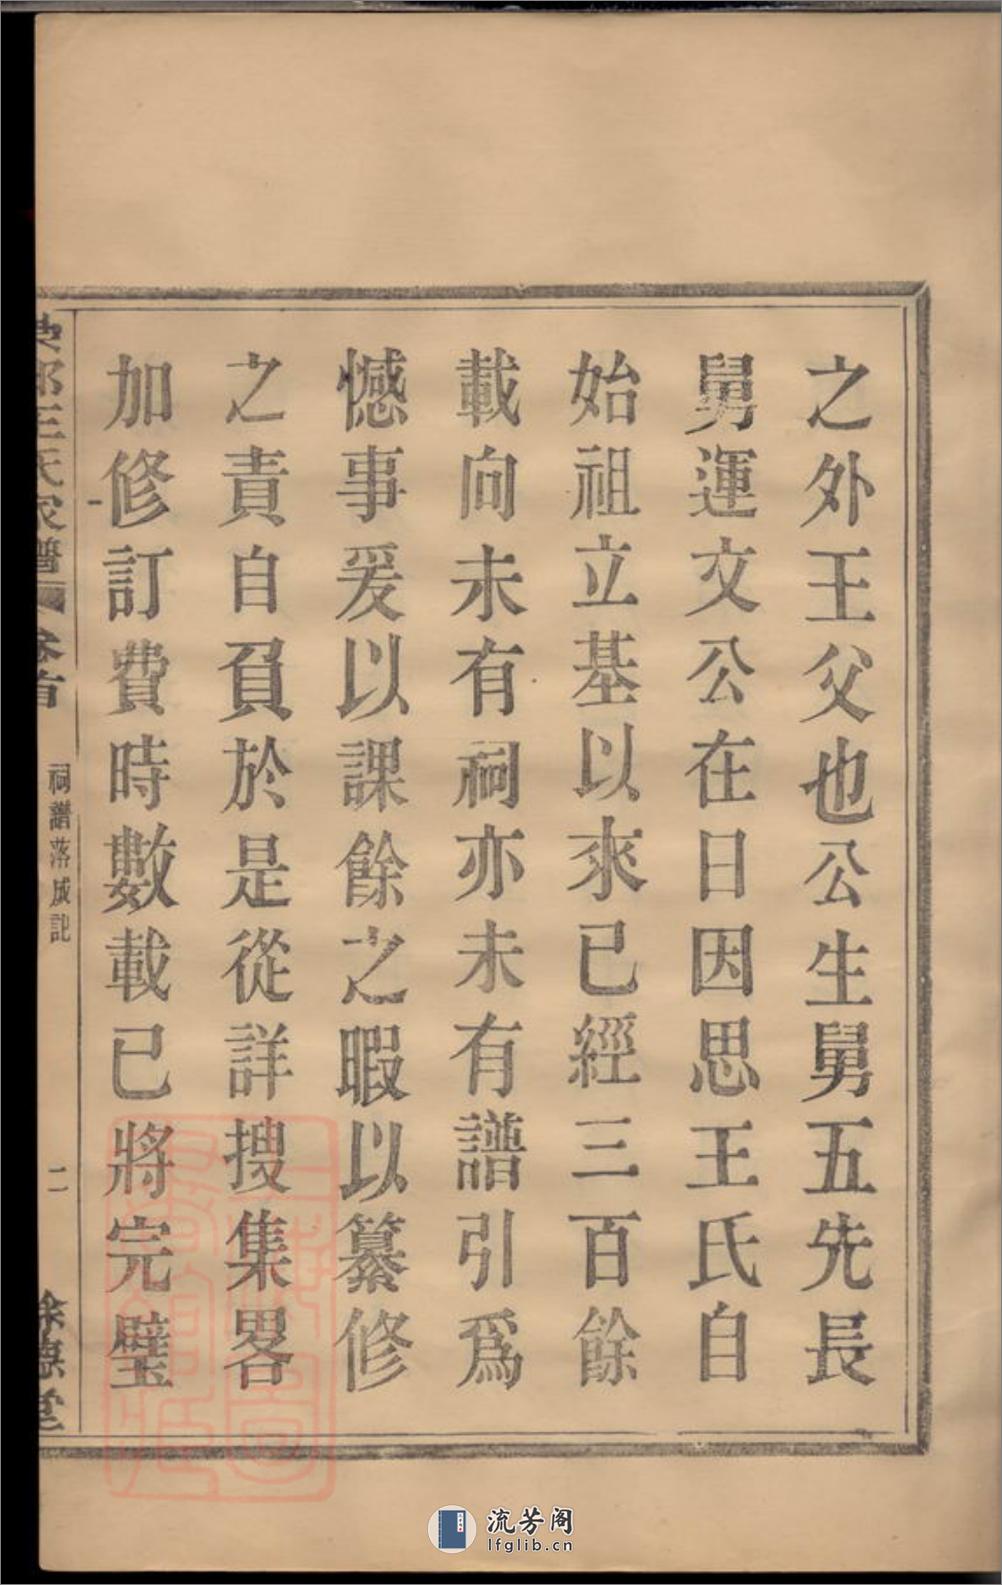 之外王父也公生舅五先長
舅運文公在日因思王氏自
始祖立基以來已經三百餘
載向未有祠亦未有譜引爲
憾事爰以課餘之暇以纂修
之責自負於是從詳搜集畧
加修訂費時數載已將完璧
王氏家譜 卷首
祠譜落成記
二
餘慶堂
流芳阁
lfglib.cn